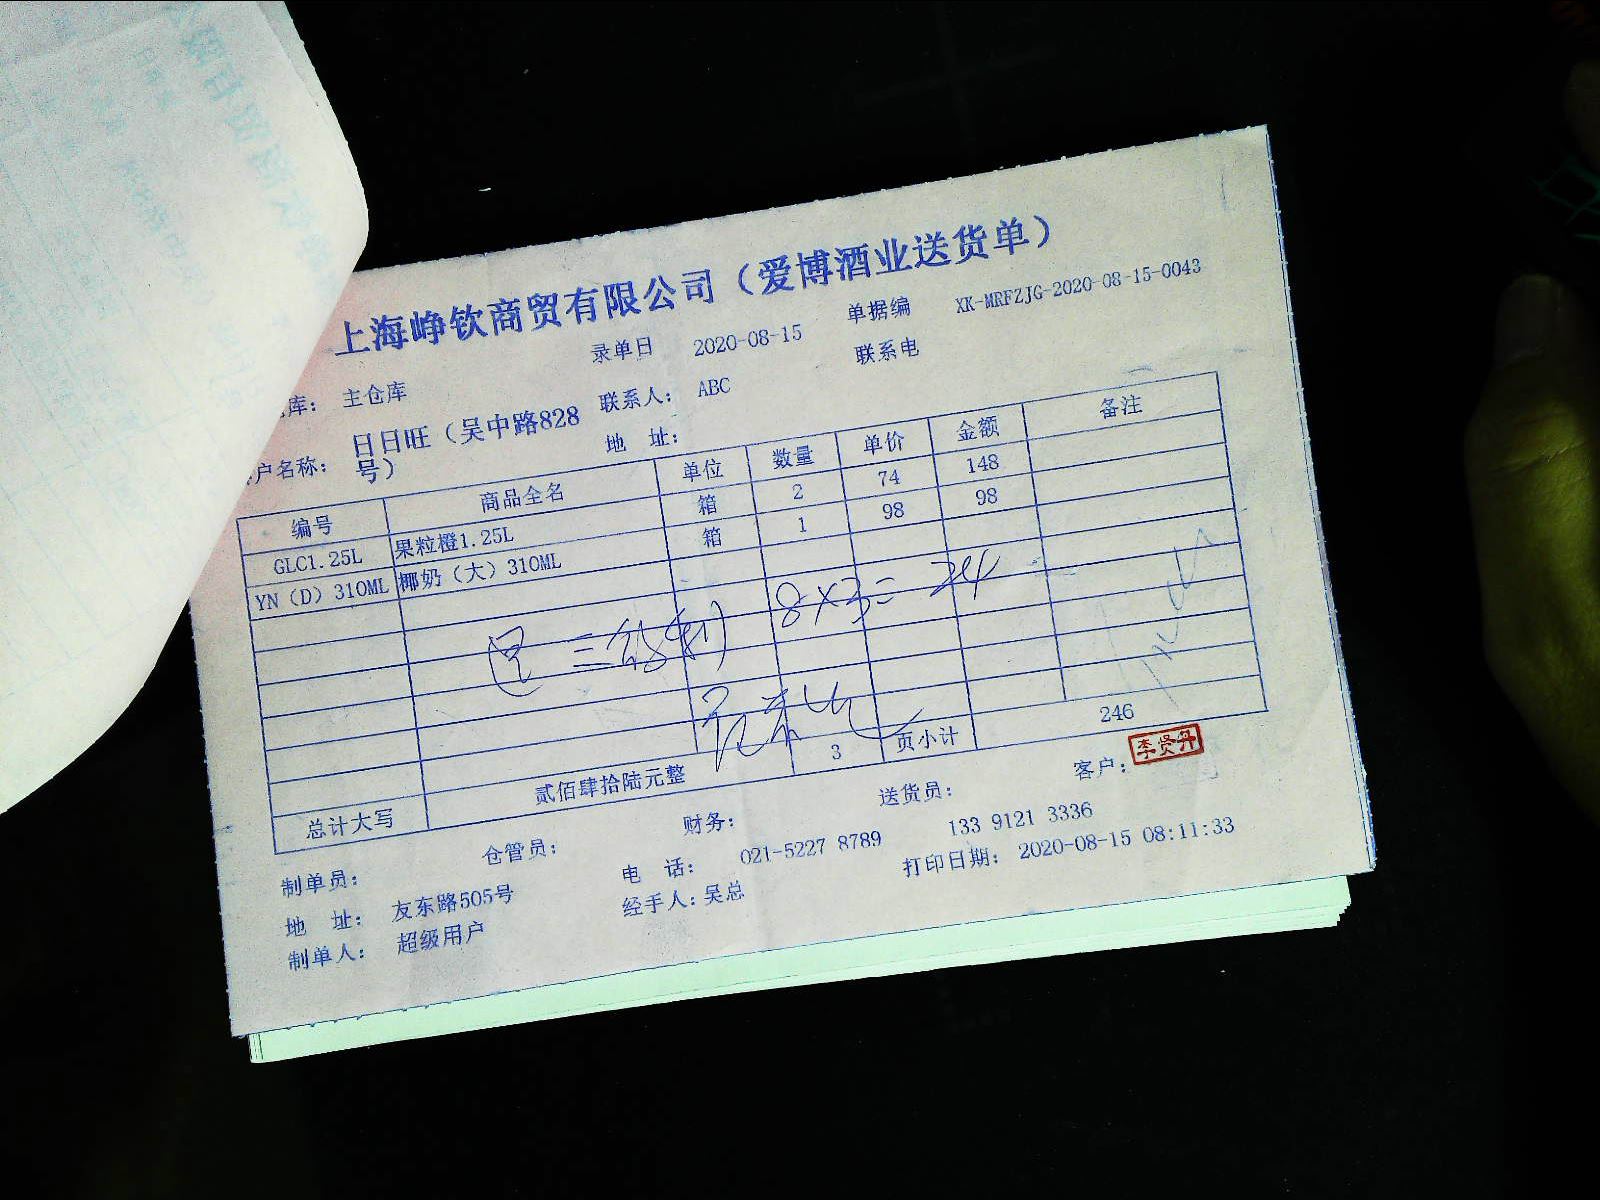 上海峥钦商贸有限公司（爱博酒业送货单）
录单日 2020-08-15 单据编 XK-MRFZJG-2020-08-15-0043
库： 主仓库 联系人： ABC 联系电
户名称： 日日旺（吴中路828号） 地 址：
编号 商品全名 单位 数量 单价 金额 备注
GLC1.25L 果粒橙1.25L 箱 2 74 148
YN（D）310ML 椰奶（大）310ML 箱 1 98 98
退 三 8×3=24
总计大写 贰佰肆拾陆元整 3 页小计 246
制单员： 仓管员： 财务： 送货员： 客户： 李贤丹
地 址： 友东路505号 电 话： 021-5227 8789 133 9121 3336
制单人： 超级用户 经手人：吴总 打印日期： 2020-08-15 08:11:33